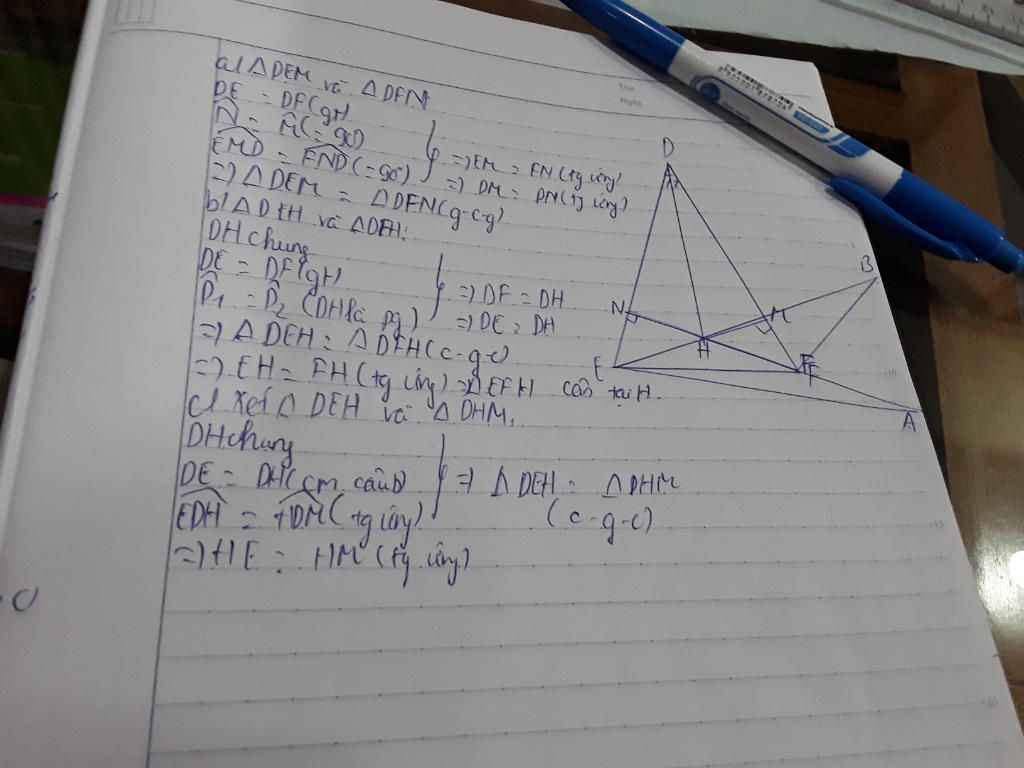 Thứ
Ngày
a) △DEM và △DFN
DE = DF(gt)
N̂ = M̂(= 90)
EMD = FND(=90°)
=> EM = FN(tg ứng)
=> DM = DN(tg ứng)
=> △DEM = △DFN(g-c-g)
b) △DEH và △DFH:
DH chung
DE = DF(gt)
D̂1 = D̂2 (DH là pg)
=> DF = DH
=> DE = DH
=> △DEH = △DFH(c-g-c)
=> EH = FH(tg ứng) => △EFH cân tại H.
c) Xét △DEH và △DHM.
DH chung
DE = DH(cm câu b)
EDH = HDM(tg ứng)
=> △DEH = △DHM
(c-g-c)
=> HE = HM(tg ứng)
D
B
N
M
H
E
F
A
10
15
20